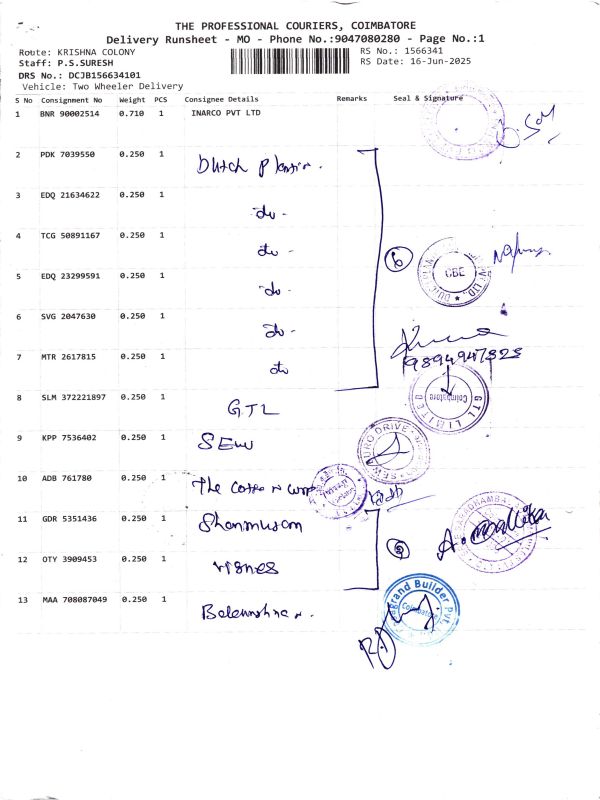 THE PROFESSIONAL COURIERS, COIMBATORE
Delivery Runsheet - MO - Phone No.:9047080280 - Page No.:1
Route: KRISHNA COLONY
RS No.: 1566341
Staff: P.S.SURESH
RS Date: 16-Jun-2025
DRS No.: DCJB156634101
Vehicle: Two Wheeler Delivery
S No Consignment No Weight PCS Consignee Details Remarks Seal & Signature
1 BNR 90002514 0.710 1 INARCO PVT LTD
2 PDK 7039550 0.250 1 Dutch
3 EDQ 21634622 0.250 1 do -
4 TCG 50891167 0.250 1 do -
5 EDQ 23299591 0.250 1 do -
6 CBE
6 SVG 2047630 0.250 1 do -
7 MTR 2617815 0.250 1 do
9894947323
8 SLM 372221897 0.250 1 GTL
GTL LIMITED
Coimbatore
9 KPP 7536402 0.250 1 SEW
EURO DRIVE
10 ADB 761780 0.250 1 The
11 GDR 5351436 0.250 1 Shanmugam
12 OTY 3909453 0.250 1
13 MAA 708087049 0.250 1
Grand Builder Pvt.
Coimbatore